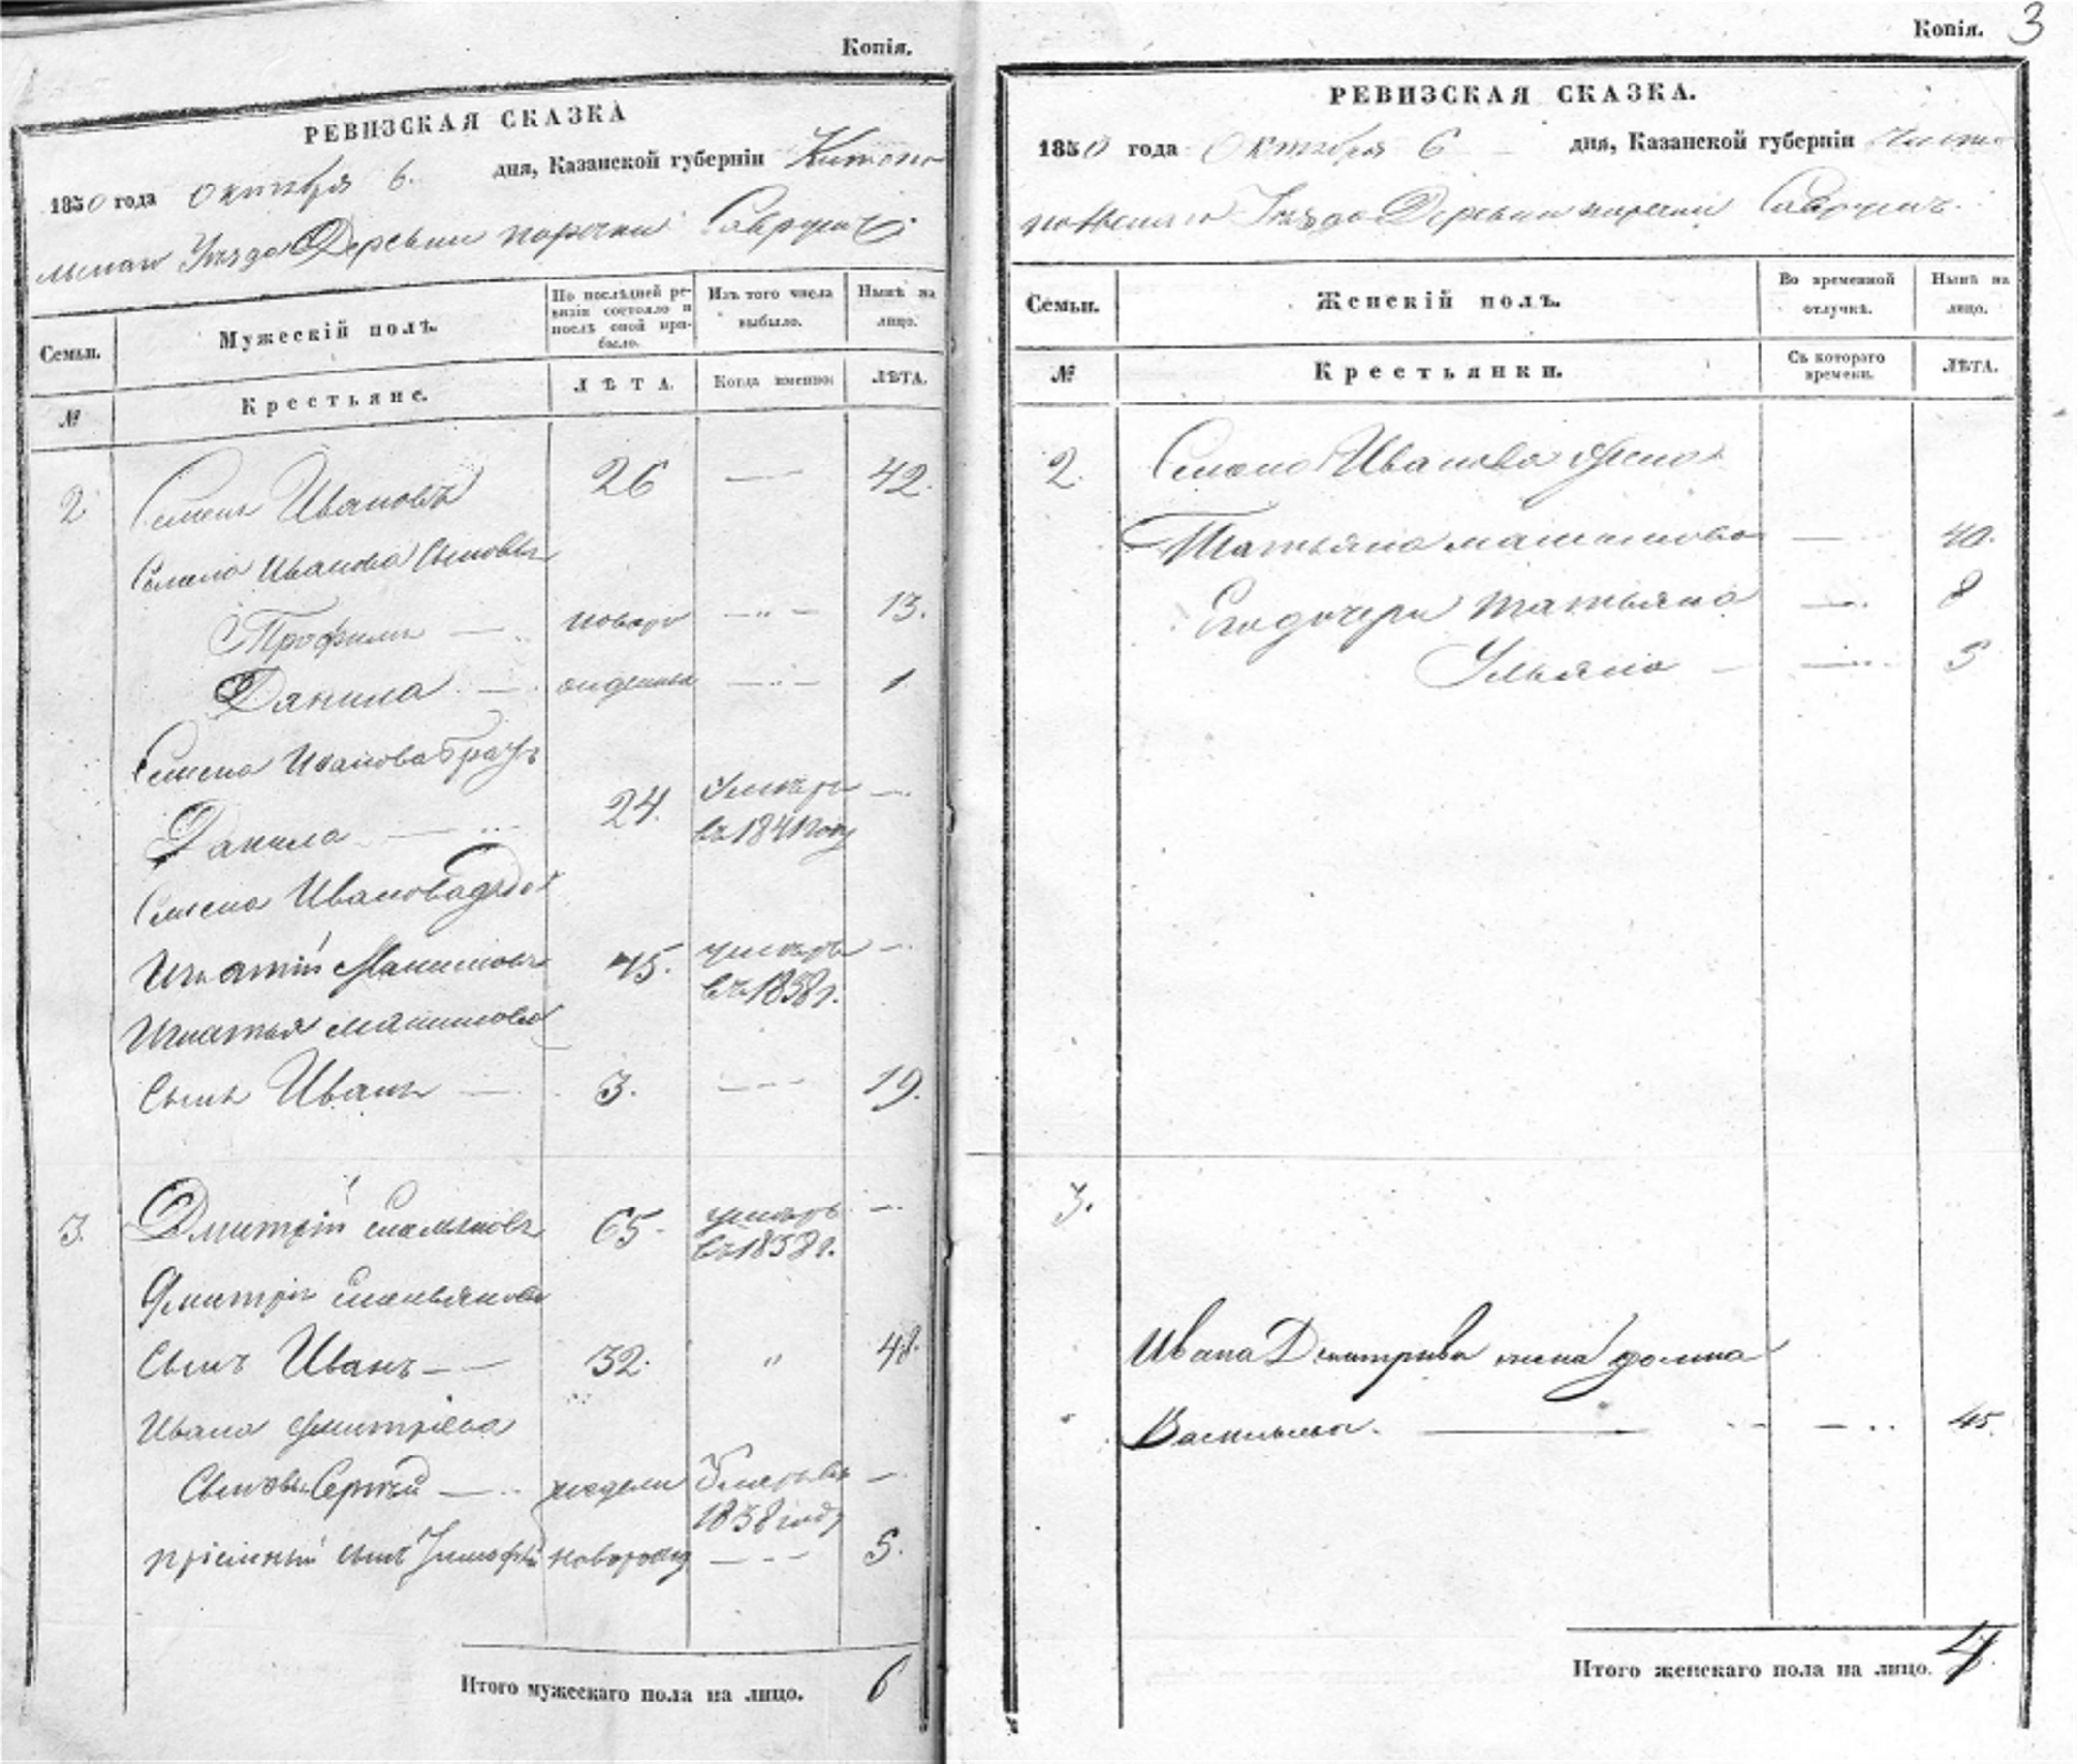 Копія.
РЕВИЗСКАЯ СКАЗКА
1850 года Октября 6. дня, Казанской губерніи Чистопо
льскаго Уѣзда Деревни порѣчки Саврушъ
Семьи. Мужескій полъ. По послѣдней ревизіи состояло и послѣ оной прибыло. Изъ того числа выбыло. Нынѣ на лицо.
№ Крестьяне. ЛѢТА. Когда именно. ЛѢТА.
2 Семенъ Ивановъ 26 — 42.
Семена Иванова Сыновья
Трофимъ — новоро — 13.
Данила — жденных — 1
Семена Иванова братъ
Данила — 24. Умеръ —
въ 1841 году
Семена Иванова дядя
Игнатій 45. умеръ —
въ 1838 г.
Игнатья
Сынъ Иванъ — 3. — 19.
3. Дмитрій 65. умеръ —
въ 1838 г.
Дмитрія
Сынъ Иванъ — 32. " 48.
Ивана Дмитріева
Сыновья Сергѣй — недели Умеръ въ —
1838 году
пріемный сынъ Тимофей новорожд — 5.
Итого мужескаго пола на лицо. 6
Копія. 3
РЕВИЗСКАЯ СКАЗКА.
1850 года Октября 6 дня, Казанской губерніи Чисто
польскаго Уѣзда Деревни порѣчки Саврушъ.
Семьи. Женскій полъ. Во временной отлучкѣ. Нынѣ на лицо.
№ Крестьянки. Съ котораго времени. ЛѢТА.
2. Семена Иванова жена
Татьяна — 40.
Его дочери Татьяна — 8
Ульяна — 5
3.
Ивана Дмитриева жена
Васильева. — 45.
Итого женскаго пола на лицо. 4